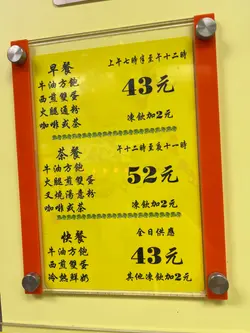 早餐 上午七時半至午十二時
牛油方飽
西煎雙蛋 43元
火腿通粉
咖啡或茶 凍飲加2元
茶餐 午十二時至夜十一時
牛油方飽
西煎雙蛋 52元
叉燒湯意粉
咖啡或茶 凍飲加2元
快餐 全日供應
牛油方飽 43元
西煎雙蛋
冷熱鮮奶 其他凍飲加2元